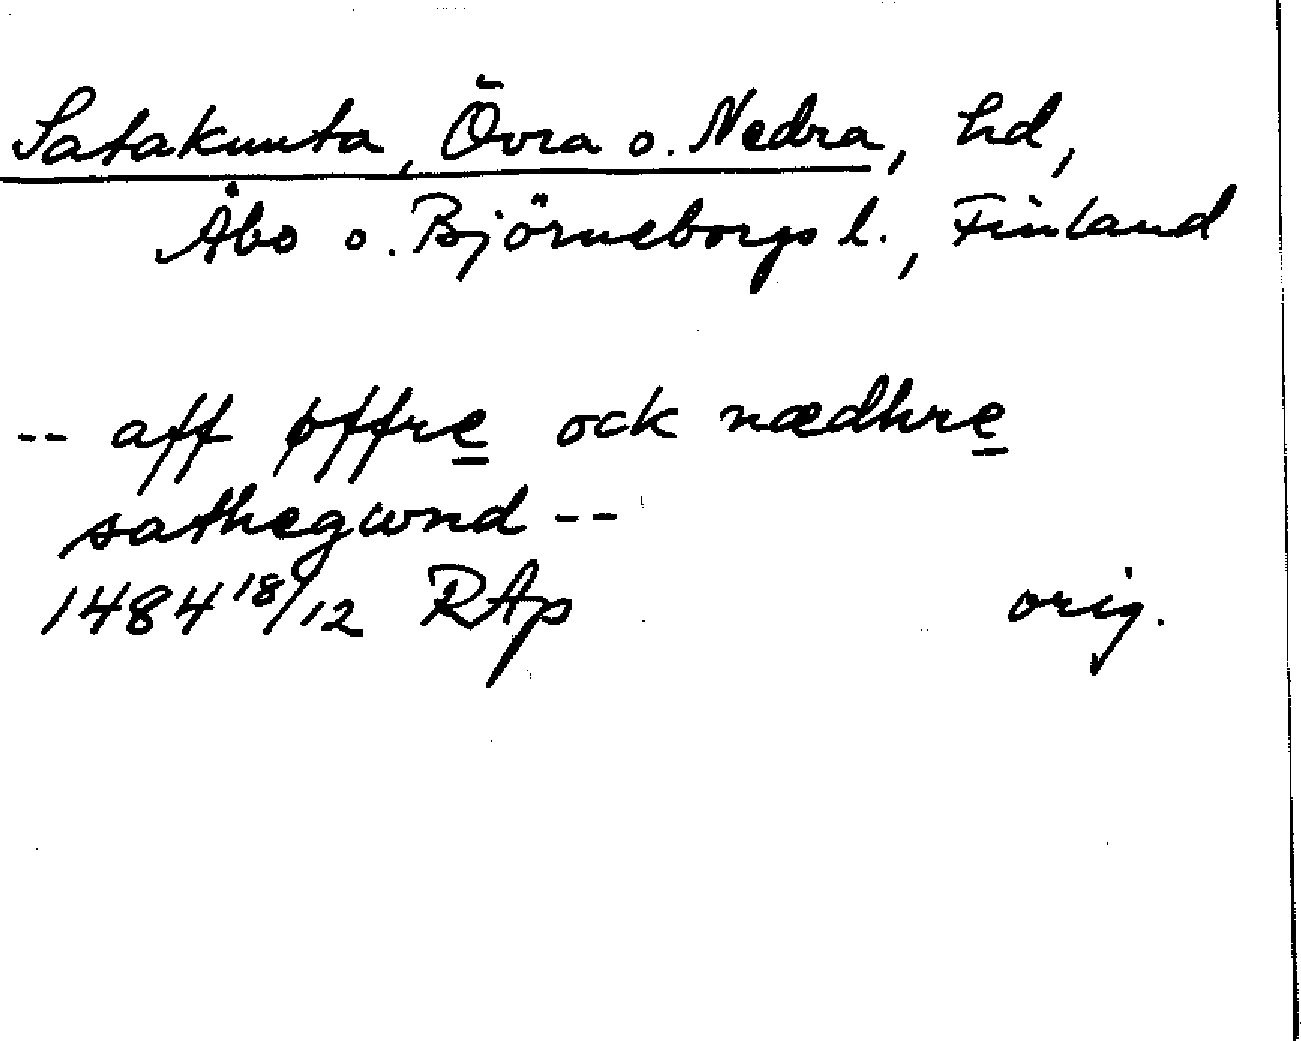 Satakunta, Övra o. Nedra, hd,
Åbo o. Björneborgs l., Finland
-- aff øffre ock nædhre
sathegwnd --
1484 18/12 RAp orig.